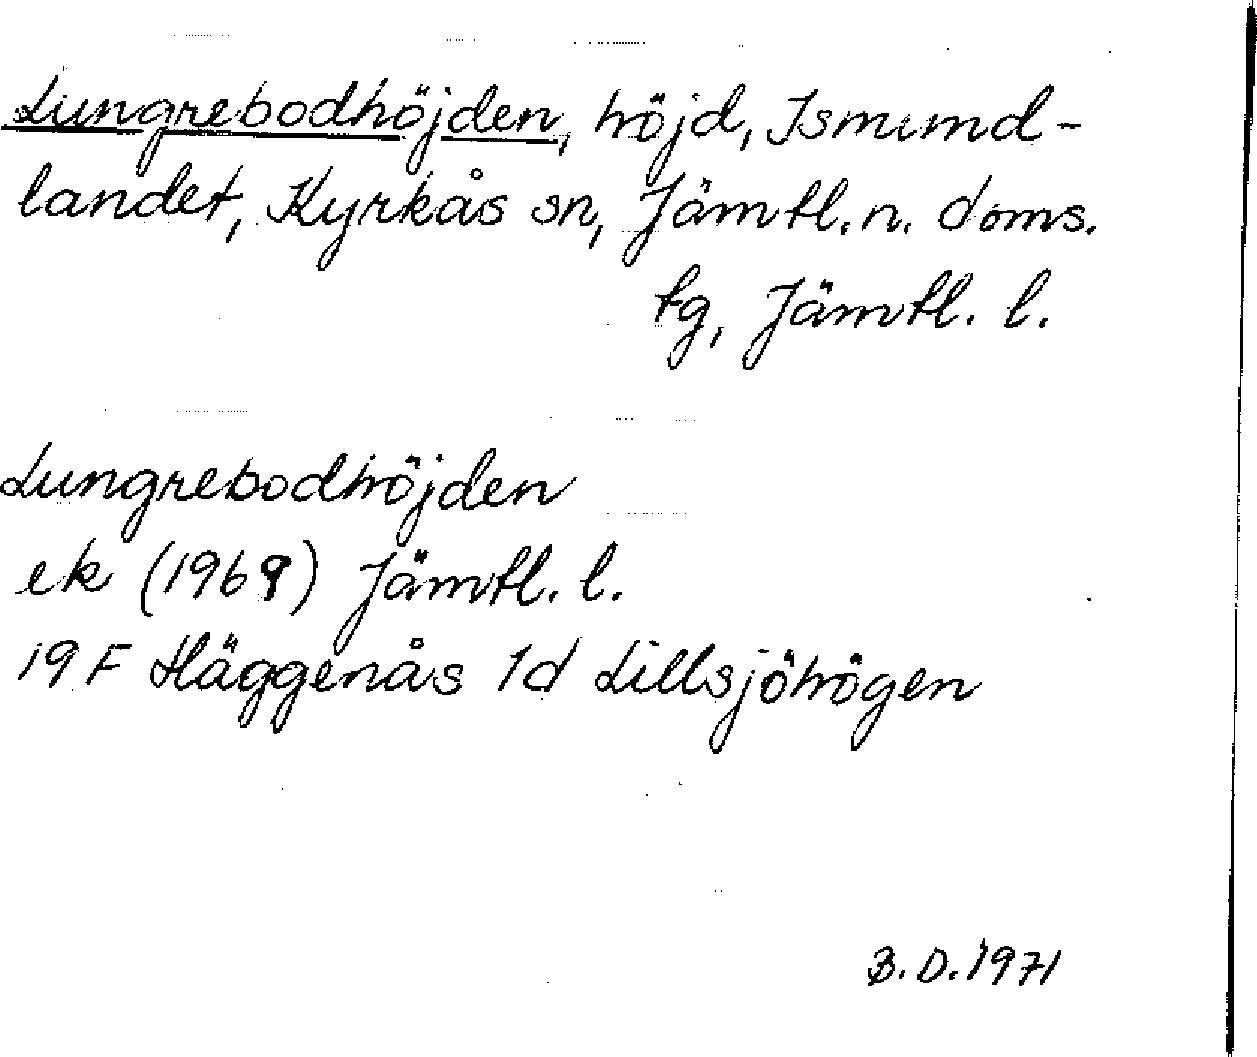 Lungrebodhöjden, höjd, Ismund-
landet, Kyrkås sn, Jämtl. n. doms.
tg, Jämtl. l.
Lungrebodhöjden
ek (1969) Jämtl. l.
19 F Häggenås 1d Lillsjöhögen
B.D. 1971